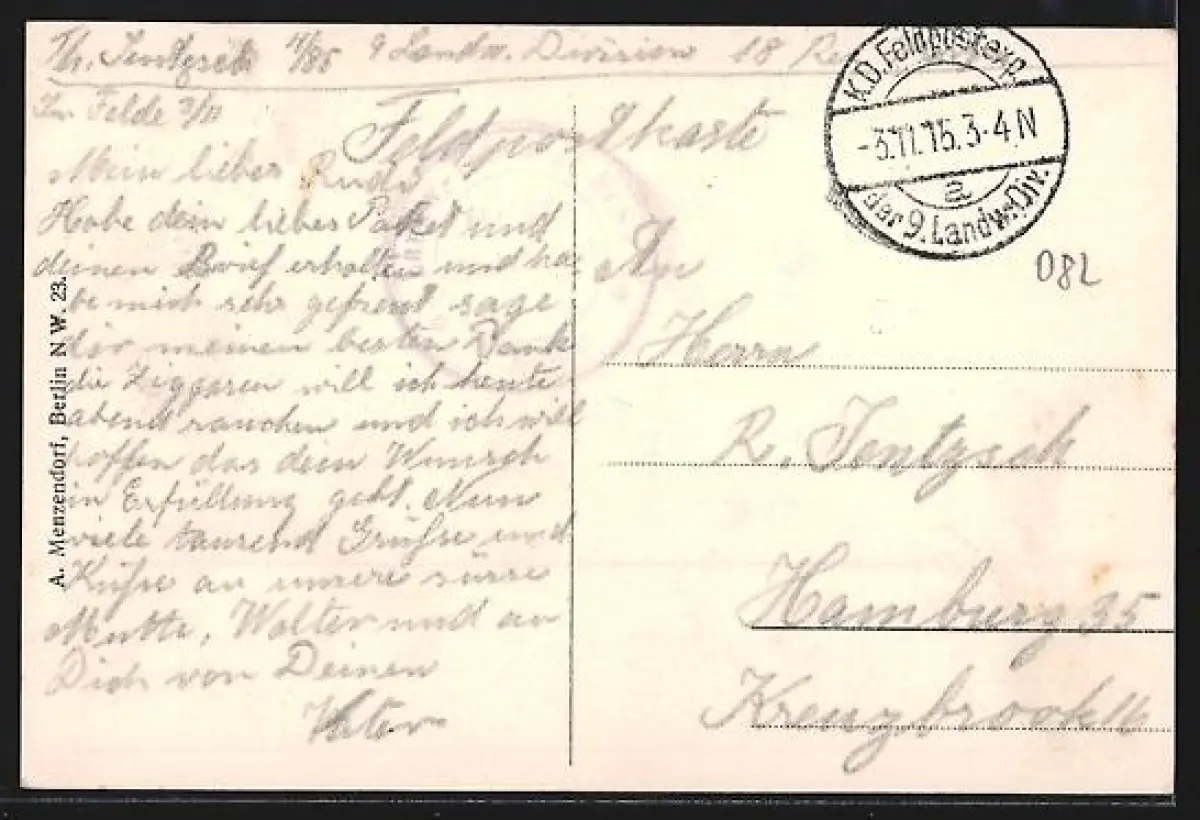 Th. Jentzsch 4/85 9 Landw. Division 18
Im Felde 3/11
Feldpostkaste
Mein lieber Rudi
Habe dein liebes Packet und
deinen Brief erhalten und ha
be mich sehr gefreut sage
dir meinen besten Dank
die Ziggaren will ich heute
abend rauchen und ich will
hoffen das dein Wunsch
in Erfüllung geht. Nun
viele tausend Grüße und
Küße an unsere süsse
Mutti, Walter und an
Dich von Deinen
Vater
An
Herrn
R. Jentzsch
Hamburg 35
Kreuzbrook
K.D. Feldpostexp.
-3.11.15. 3-4 N
a
der 9. Landw. Div.
082
A. Menzendorf, Berlin NW. 23.